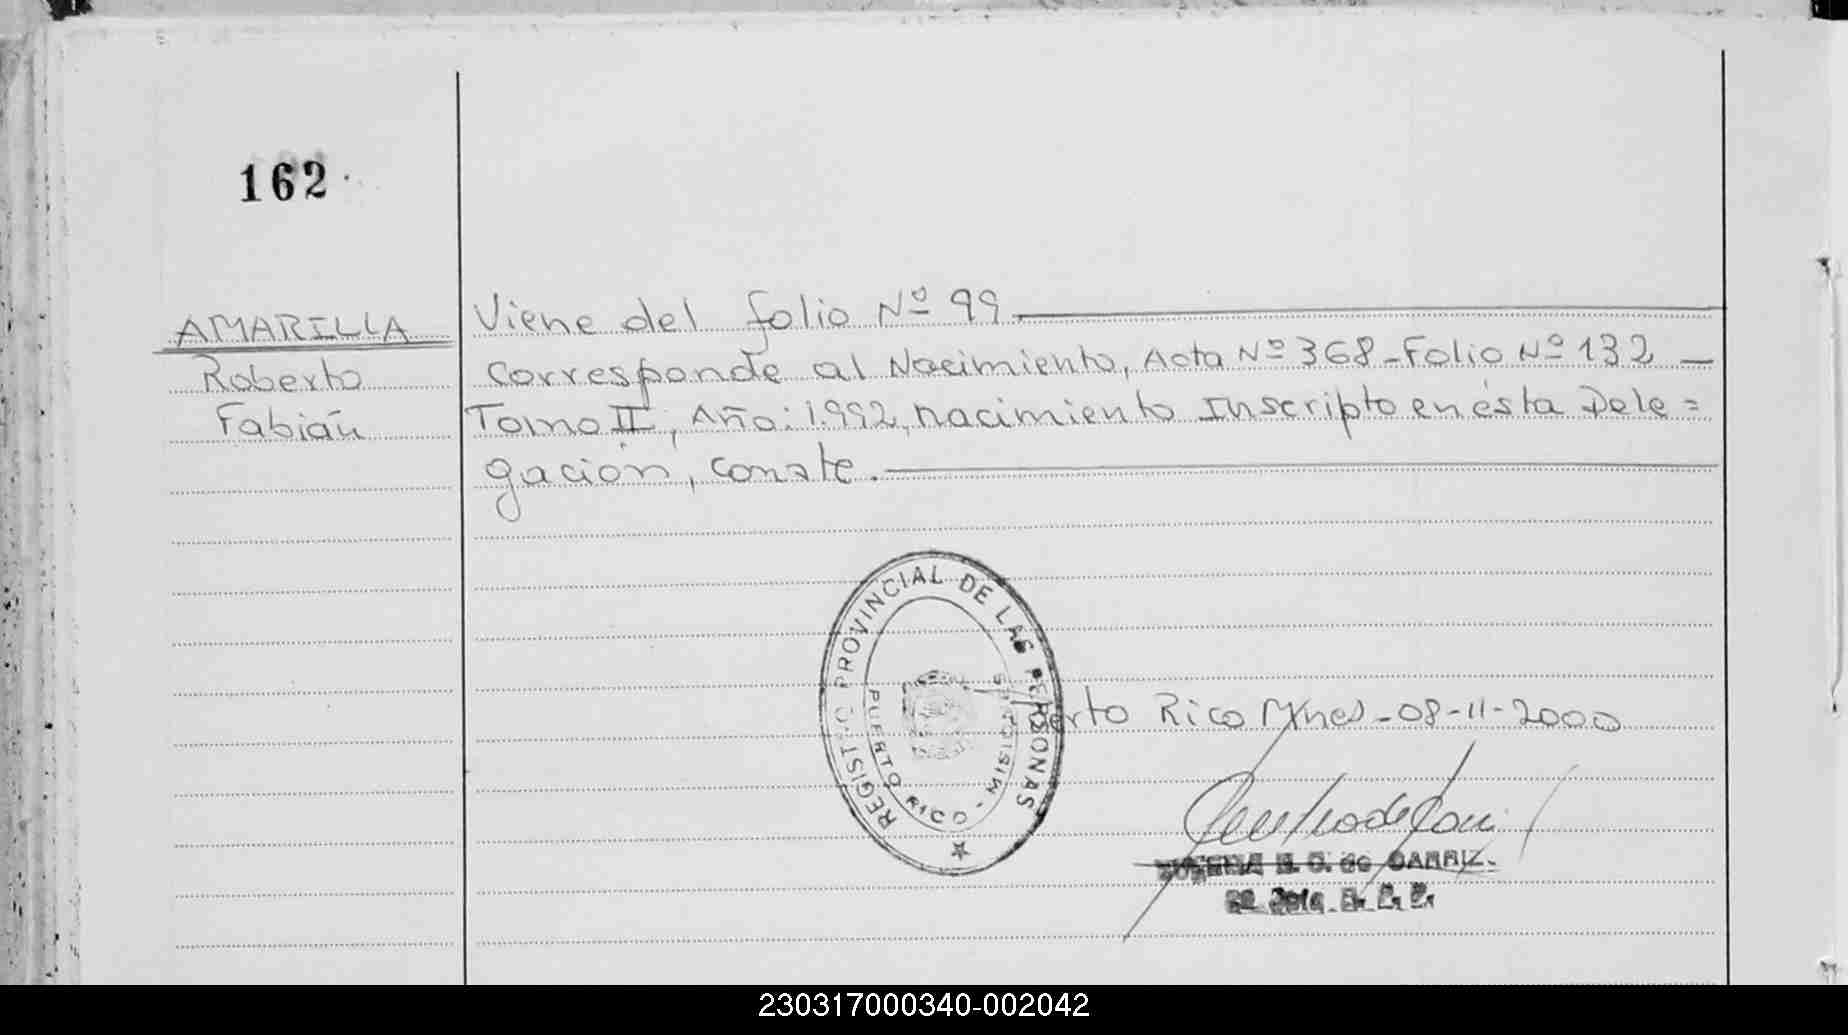 162
AMARILLA
Roberto
Fabián
Viene del folio Nº 99.
Corresponde al Nacimiento, Acta Nº 368-Folio Nº 132 —
Tomo II, Año: 1.992, nacimiento Inscripto en ésta Dele=
gación, conste.
REGISTRO PROVINCIAL DE LAS PERSONAS
PUERTO RICO - MISIONES
Puerto Rico Mnes - 08-11-2000
de
230317000340-002042